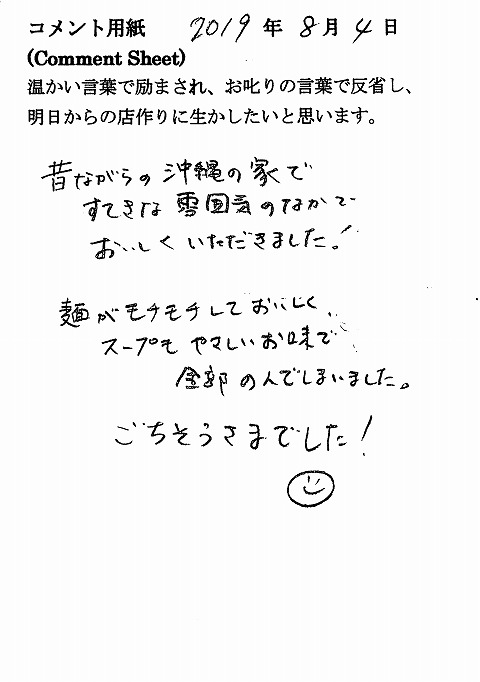 コメント用紙 2019 年 8 月 4 日
(Comment Sheet)
温かい言葉で励まされ、お叱りの言葉で反省し、
明日からの店作りに生かしたいと思います。
昔ながらの沖縄の家で
すてきな雰囲気のなかで
おいしくいただきました!
麺がモチモチしておいしく、
スープもやさしいお味で
全部のんでしまいました。
ごちそうさまでした!